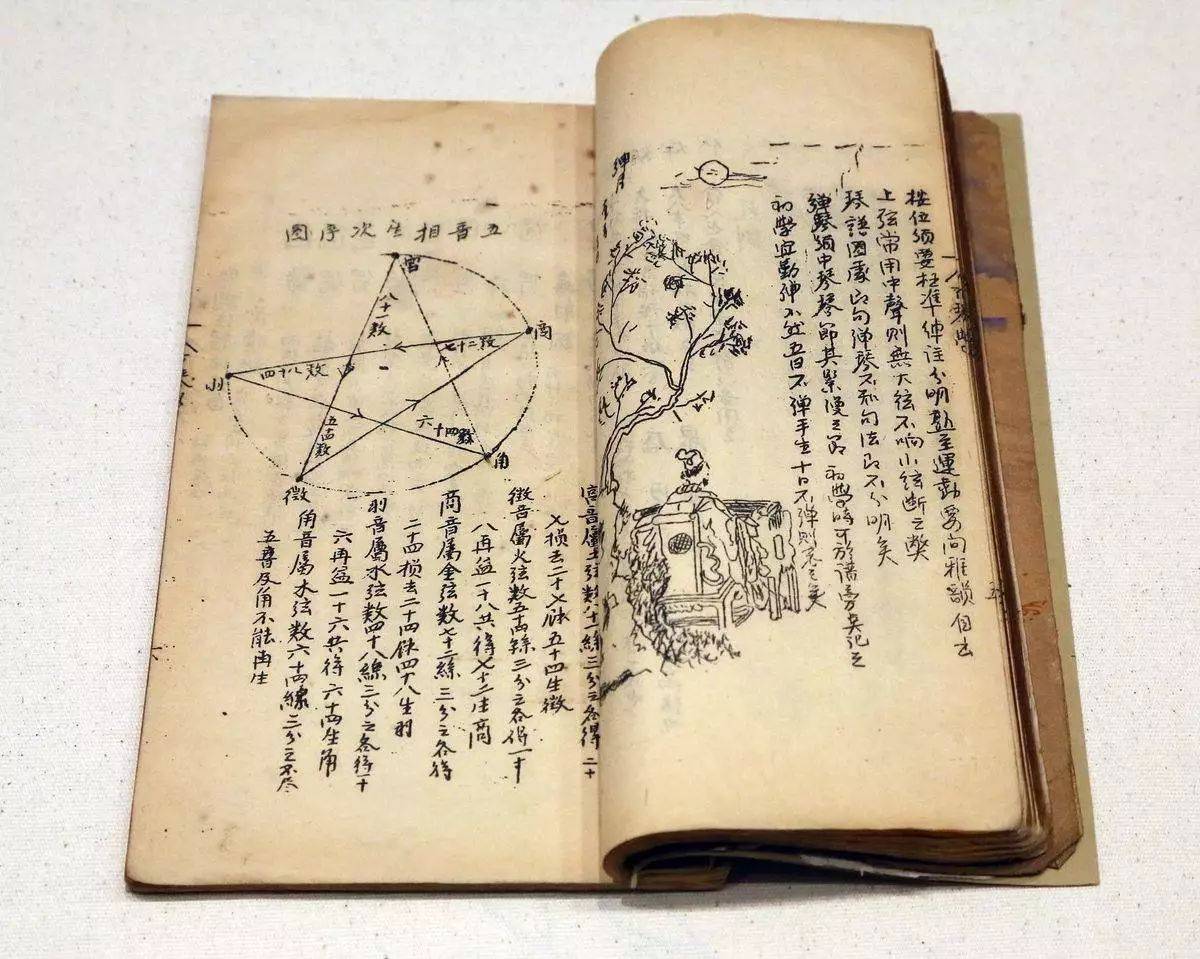 按位須要極准伸註分明熟至運動要向雅韻自去
上弦常用中聲則無大弦不响小弦断之獘
琴譜圖處即句弹琴不知句法即不分明矣
弹琴須中琴琴節其緊慢之節初學時可於譜旁尖記之
初學宜勤弹不然五日不弹手生十日不弹則忘之矣
弹月
五音相生次序圖
宮
商
角
徵
羽
八十一数
七十二数
六十四数
五十四数
四十八数
宮音屬土弦数八十一絲三分之各得二十
七损去二十七祘五十四生徵
徵音屬火弦数五十四絲三分之各得一十
八再益一十八共得七十二生商
商音屬金弦数七十二絲三分之各得
二十四损去二十四祘四十八生羽
羽音屬水弦数四十八絲三分之各得一十
六再益一十六共得六十四生角
角音屬木弦数六十四線三分之不尽
五音反角不能再生